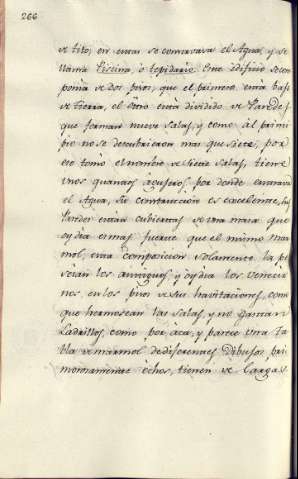 266
de tito, en estas se conservava el Agua, y se
llama Piscina o tepidario. Este Edificio secom
ponia de dos pisos, que el primero està baso
de tierra, el otro está dividido de Paredes
que forman nueve salas, y como al princi
pio no se descubrieron mas que siete, por
eso tomò el nombre de Siete salas, tiene
unos quantos agujeros por donde entrava
el Agua, su construccion es excelente, las
Paredes estàn cubiertas de una masa que
oy dia es mas fuerte que el mismo Mar
mol, esta composicion solamente la po
seian los antiguos, y oy dia los Venecia
nos, en los pisos de sus havitaciones, con
que hermosean las salas, y no gastan
Ladrillos, como por àca, y parece una ta
bla de marmol de diferentes Dibusos, pri
morosamente echos, tienen de largas